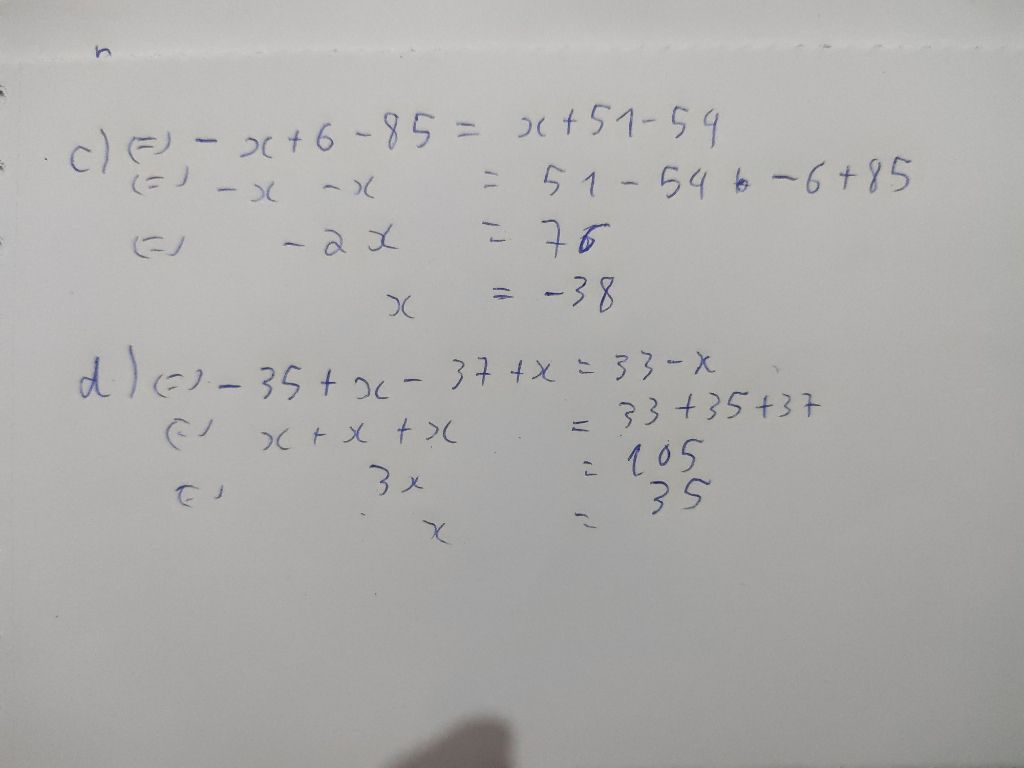 c) (=) - x + 6 - 85 = x + 51 - 54
(=) - x - x = 51 - 54 - 6 + 85
(=) - 2x = 76
x = -38
d) (=) - 35 + x - 37 + x = 33 - x
(=) x + x + x = 33 + 35 + 37
(=) 3x = 105
x = 35